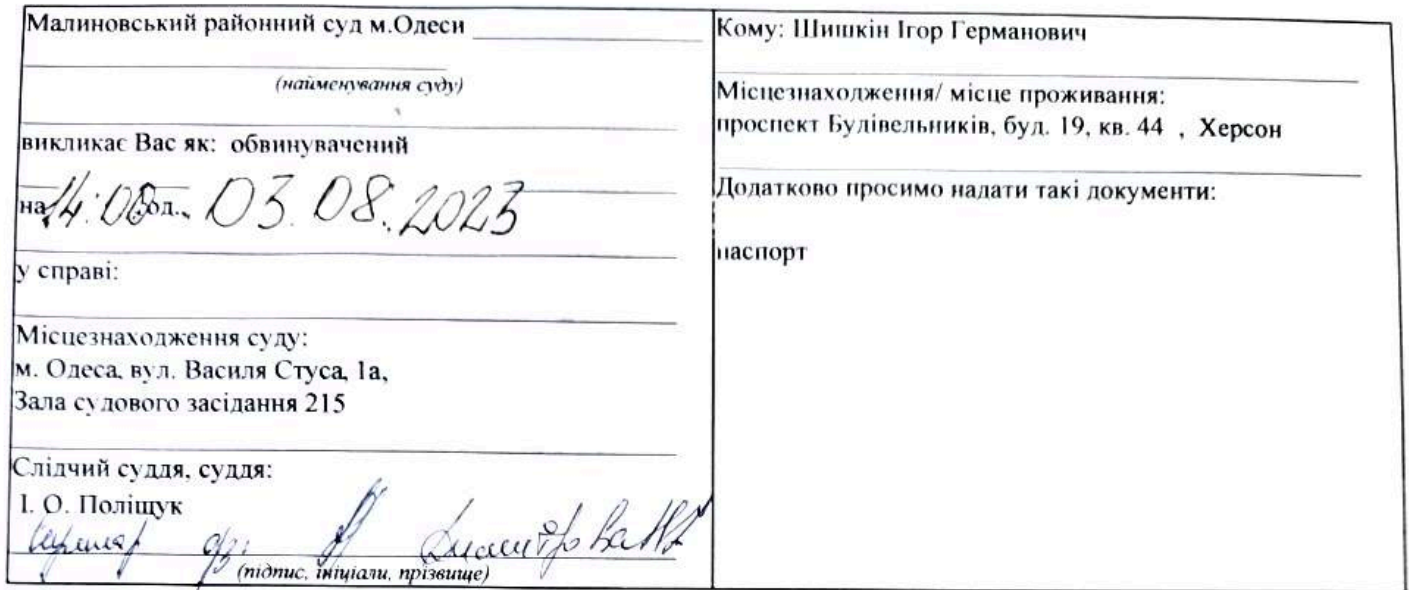 Малиновський районний суд м.Одеси
(найменування суду)
викликає Вас як: обвинувачений
на 14:00 год., 03.08.2023
у справі:
Місцезнаходження суду:
м. Одеса, вул. Василя Стуса, 1а,
Зала судового засідання 215
Слідчий суддя, суддя:
І. О. Поліщук
(підпис, ініціали, прізвище)
Кому: Шишкін Ігор Германович
Місцезнаходження/ місце проживання:
проспект Будівельників, буд. 19, кв. 44 , Херсон
Додатково просимо надати такі документи:
паспорт